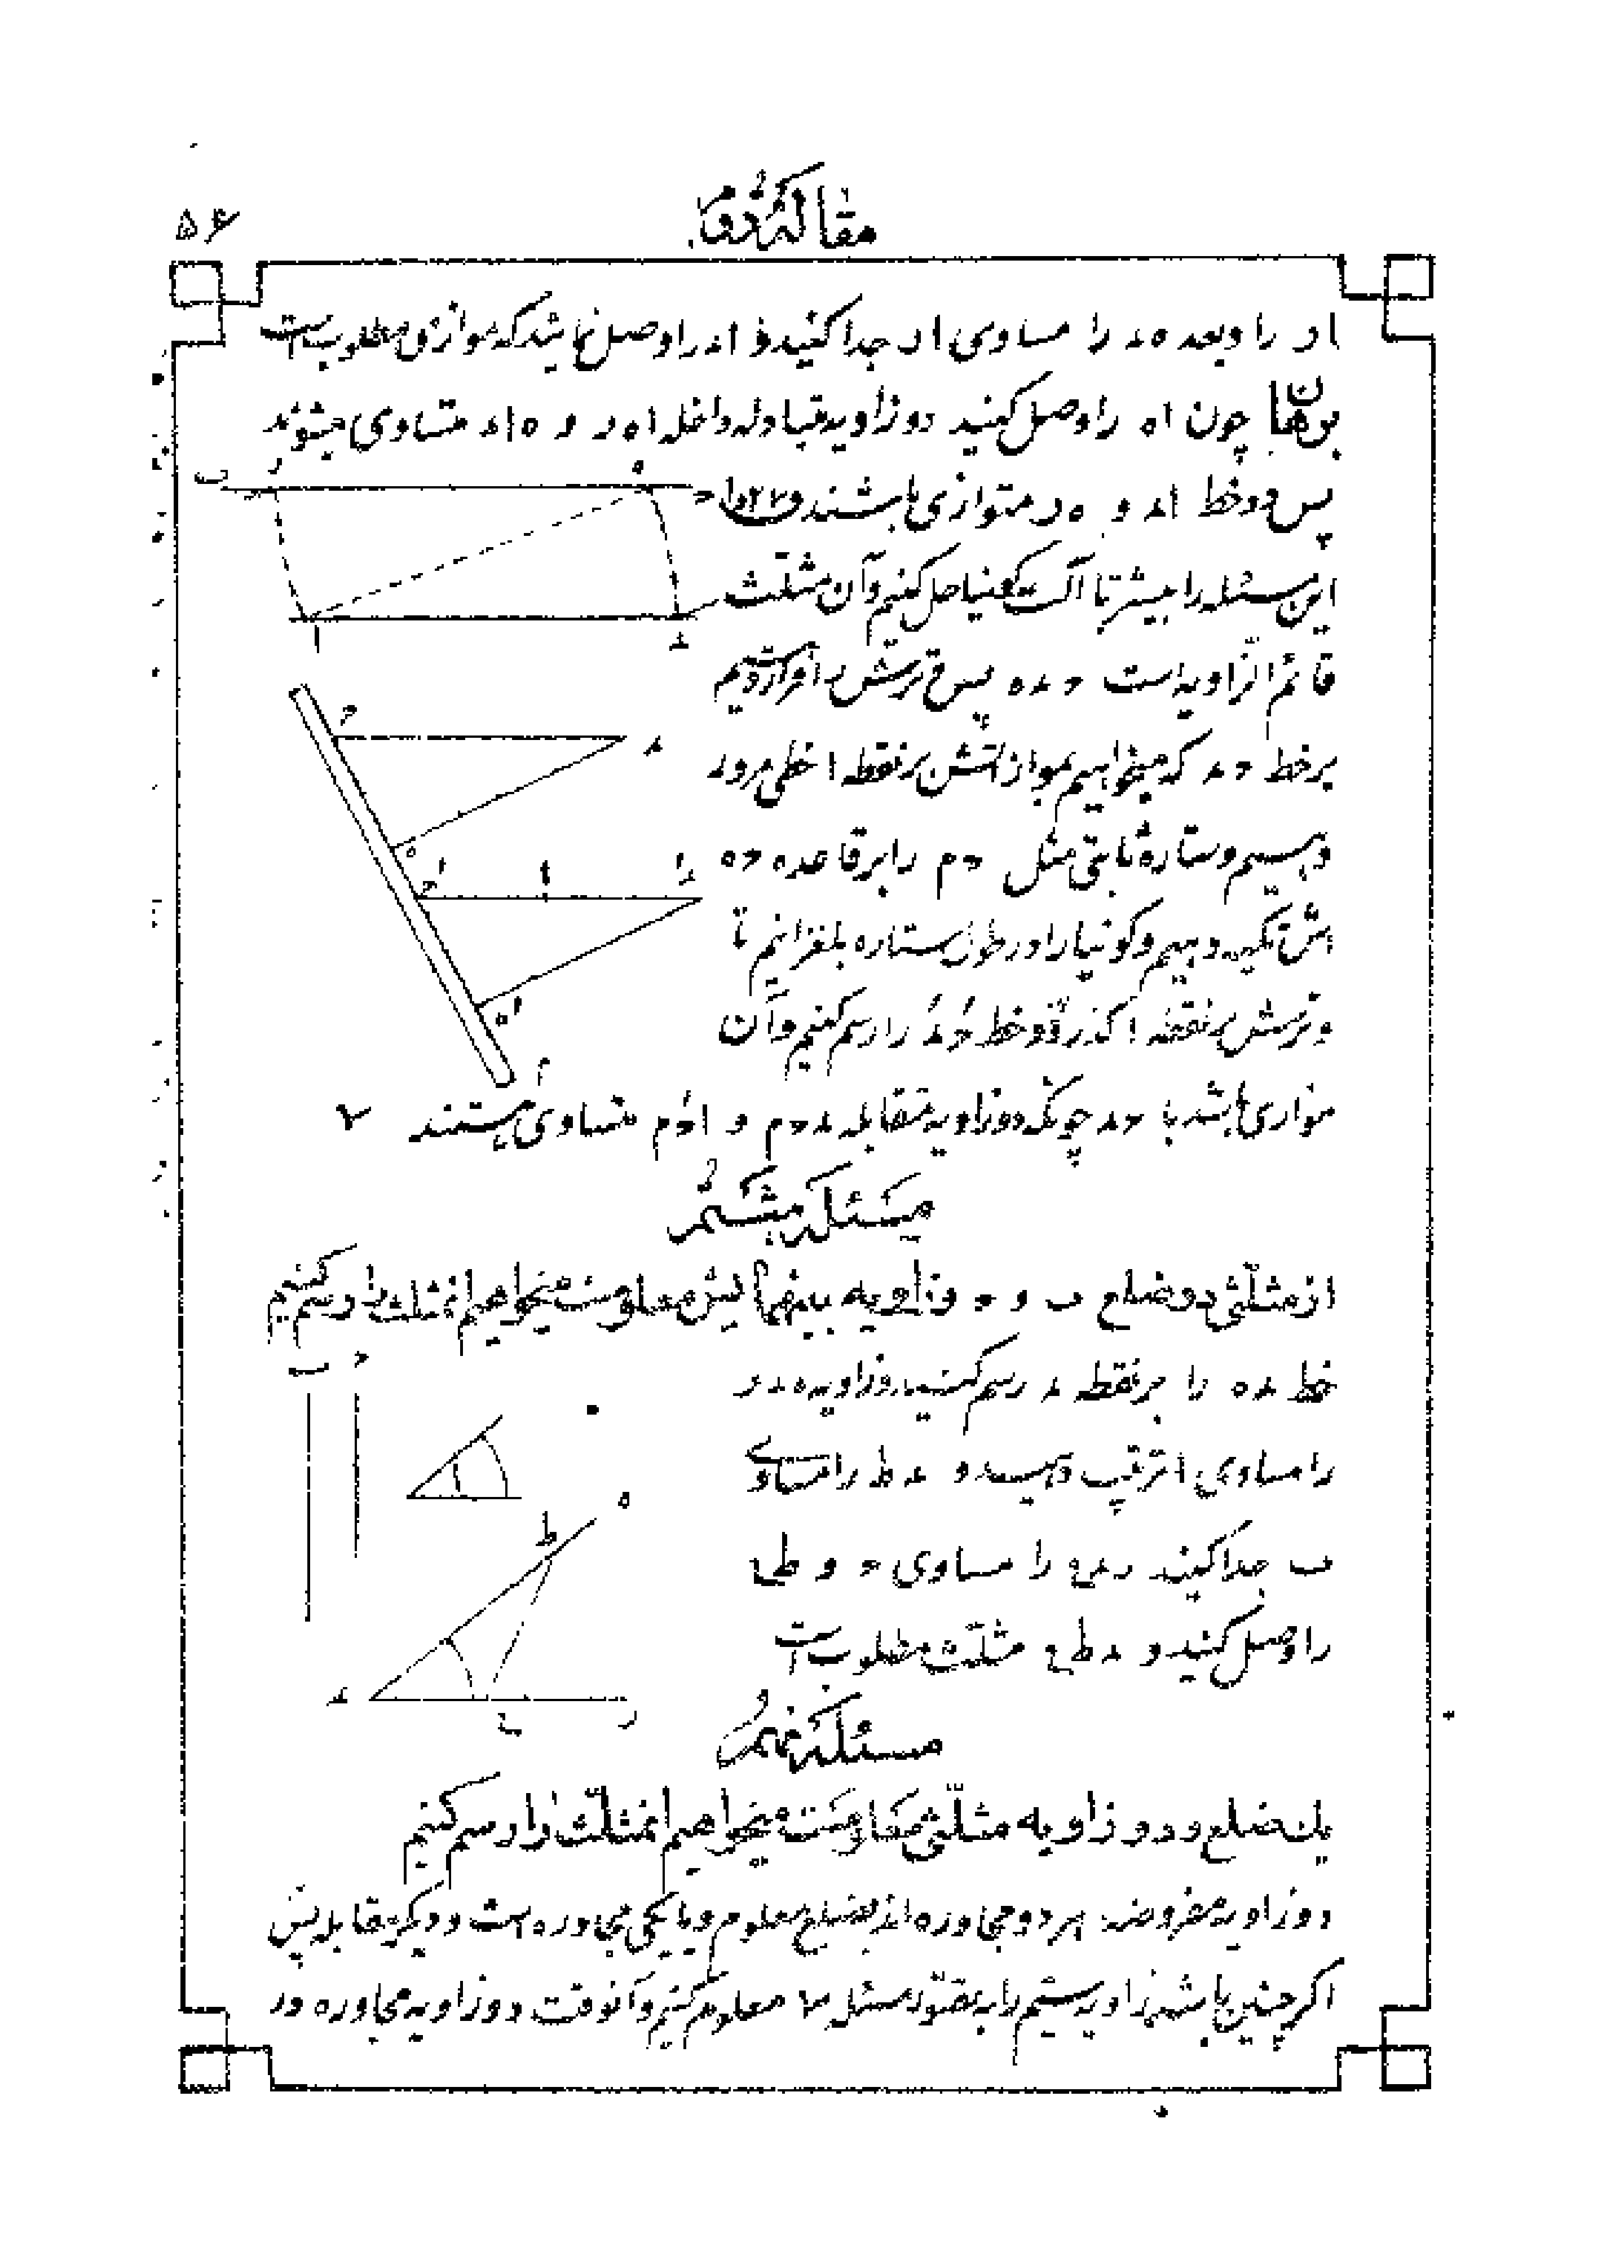 ۵۶
مقاله دوم
ار را و بعد ه‍ء را مساوی ار جدا کنید و اء را وصل نمائید که موازی مطلوب است
برهان چون اه را وصل کنید دو زاویه متبادله داخله اهر و هاء متساوی میشوند
پس دو خط اء و هر متوازی باشند
این مسئله را بیشتر با آلت گونیا حل کنیم و آن مثلث
قائم الزاویه است حءه پس وترش را قرار دهیم
بر خط حء که میخواهیم بموازاتش بر نقطه ا خطی مرور
دهیم و ستاره ثابتی مثل حم را بر قاعده حه
اش تکیه دهیم و گونیا را در طول ستاره بلغزانیم تا
وترش بر نقطه ا گذرد و خط حَءَ را رسم کنیم و آن
موازی باشد با حء چونکه دو زاویه متقابله ءحم و احَم متساوی هستند
مسئله هشتم
از مثلثی دو ضلع ب و ح و زاویه بینهمایش معلومست میخواهیم آنمثلث را رسم کنیم
خط ءه را بر نقطه ء رسم کنید و زاویه هءر
را مساوی ا ترتیب دهید و ءط را مساوی
ب جدا کنید و ءع را مساوی ح و طع
را وصل کنید و ءطع مثلث مطلوب است
مسئله نهم
یک ضلع و دو زاویه مثلثی معلومست میخواهیم آنمثلث را رسم کنیم
دو زاویه مفروضه هر دو مجاوره اند بضلع معلوم و یا یکی مجاوره است و دیگر مقابله پس
اگر چنین باشد زاویه سیم را به مسئله ۷ معلوم کنیم و آنوقت دو زاویه مجاوره در